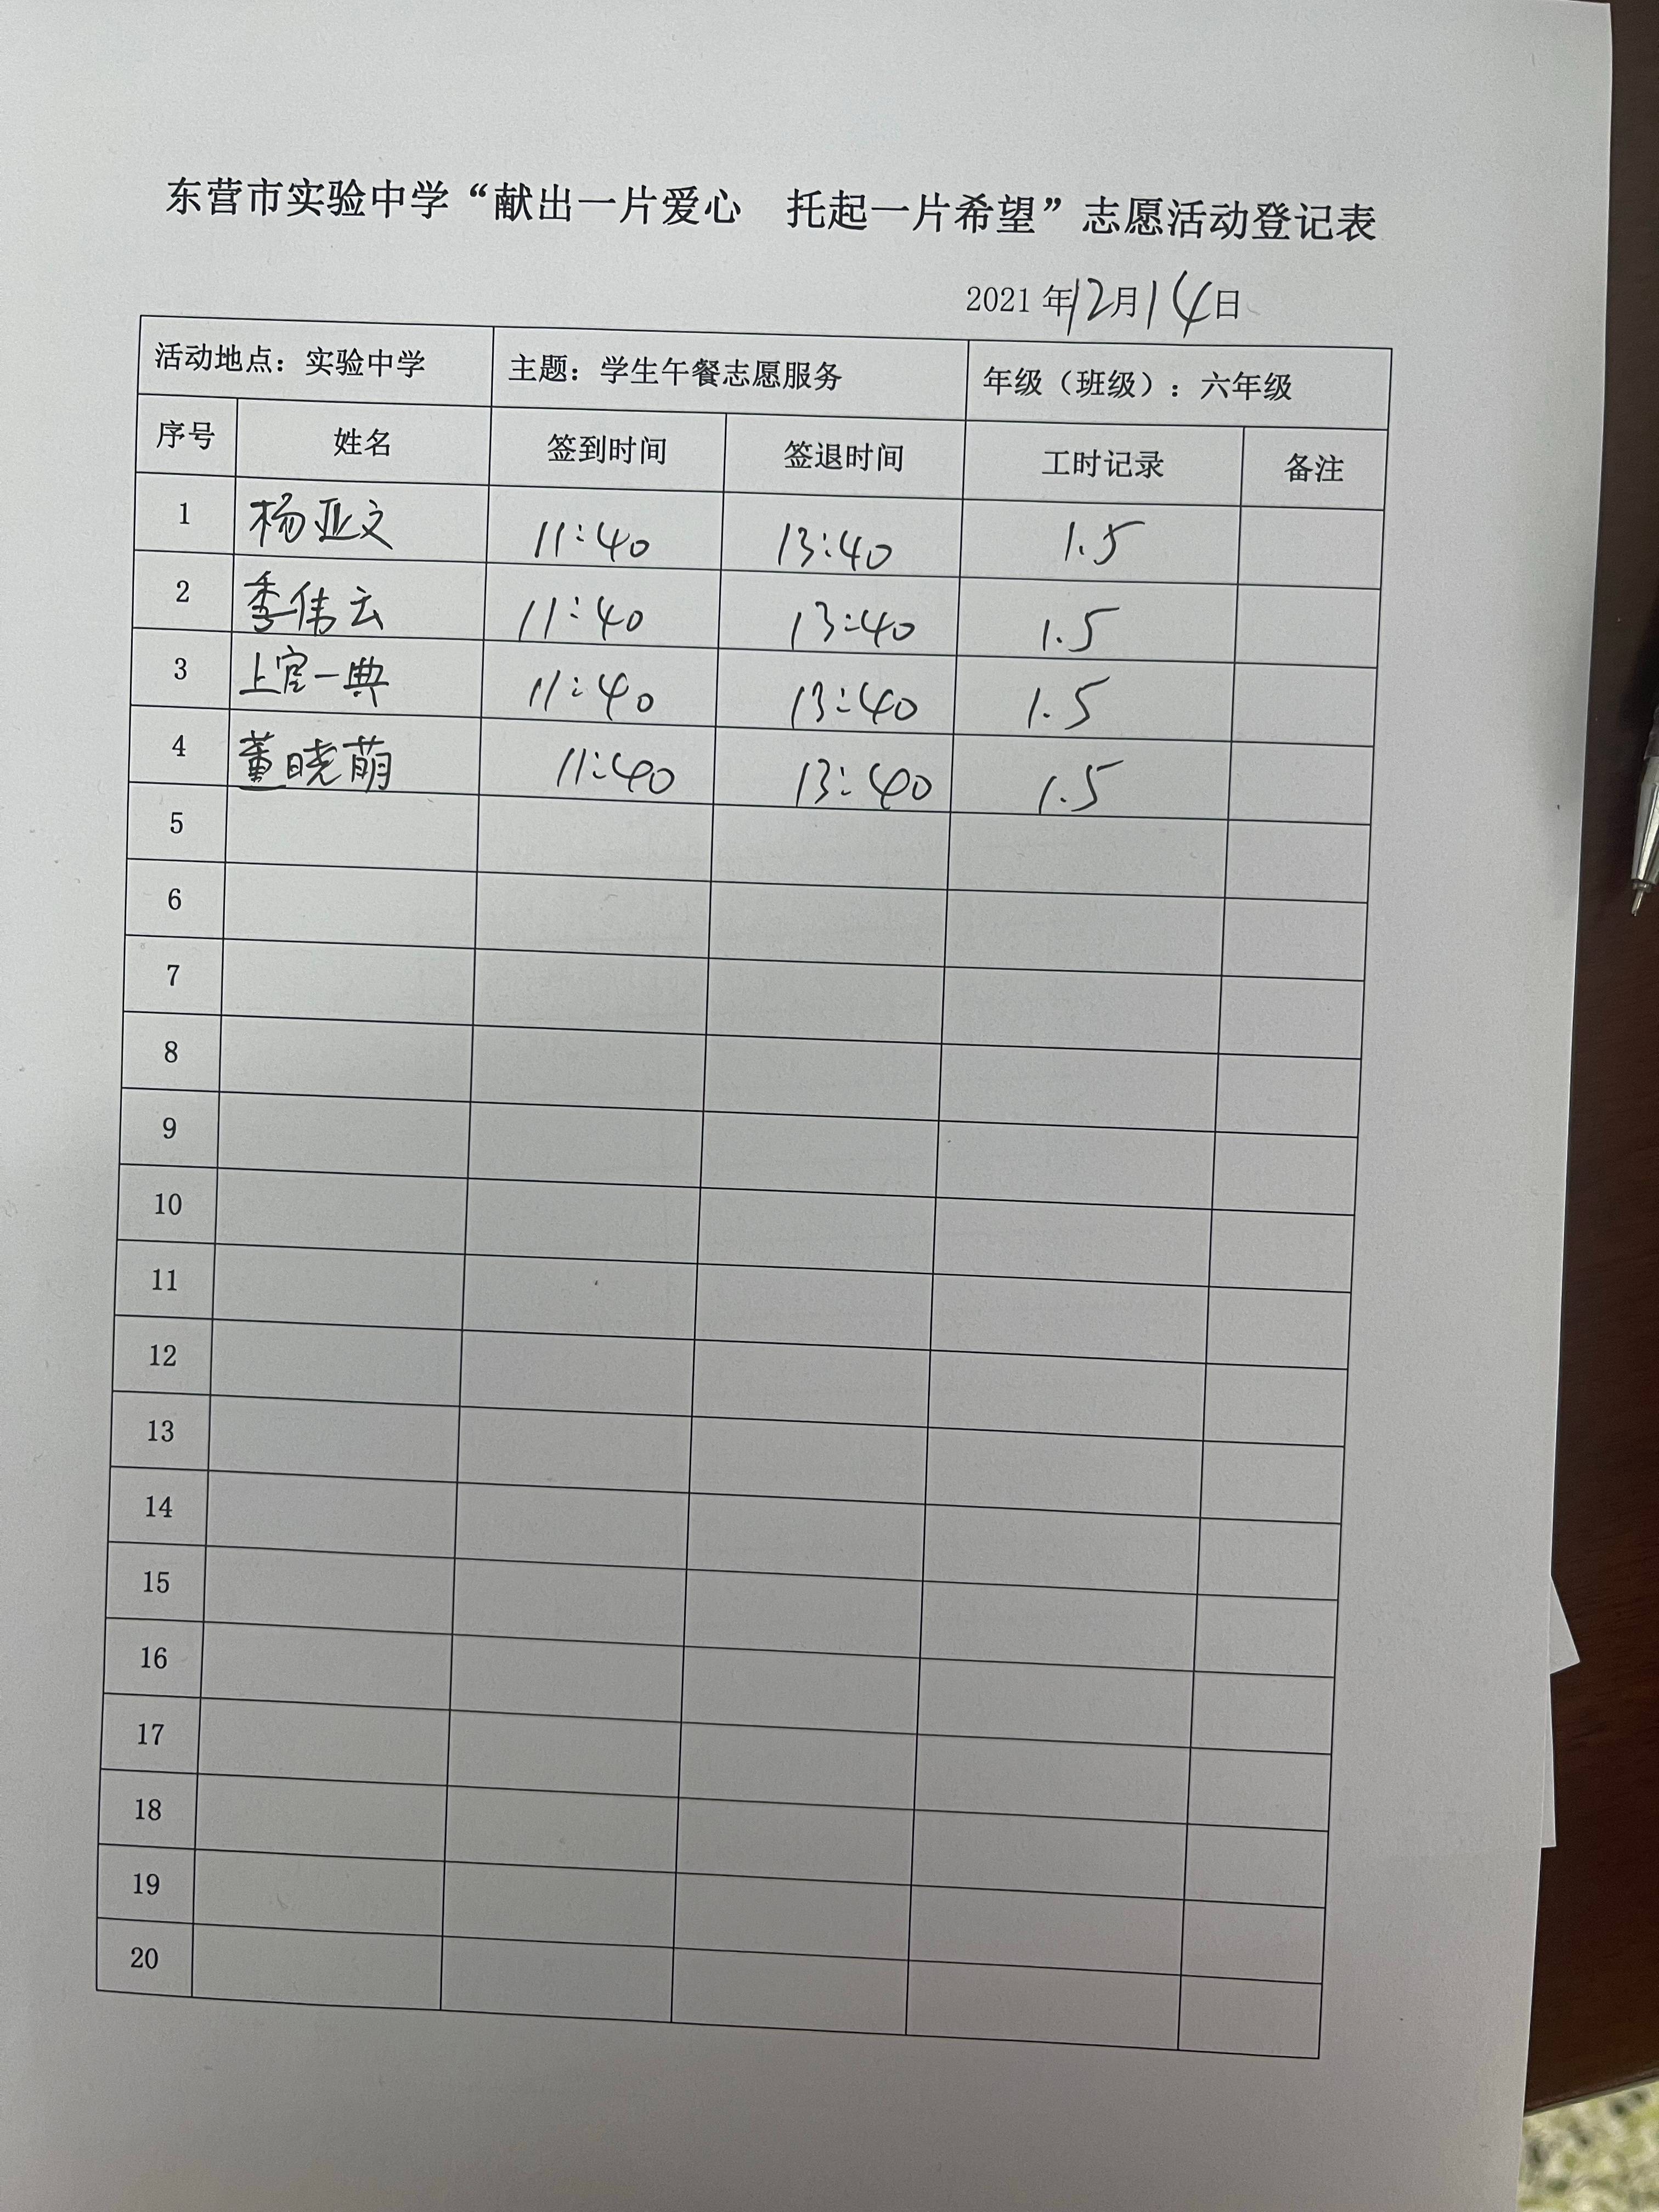 东营市实验中学“献出一片爱心 托起一片希望”志愿活动登记表
2021年12月14日
活动地点：实验中学 主题：学生午餐志愿服务 年级（班级）：六年级
序号 姓名 签到时间 签退时间 工时记录 备注
1 杨亚文 11:40 13:40 1.5
2 季伟云 11:40 13:40 1.5
3 上官一典 11:40 13:40 1.5
4 董晓萌 11:40 13:40 1.5
5
6
7
8
9
10
11
12
13
14
15
16
17
18
19
20